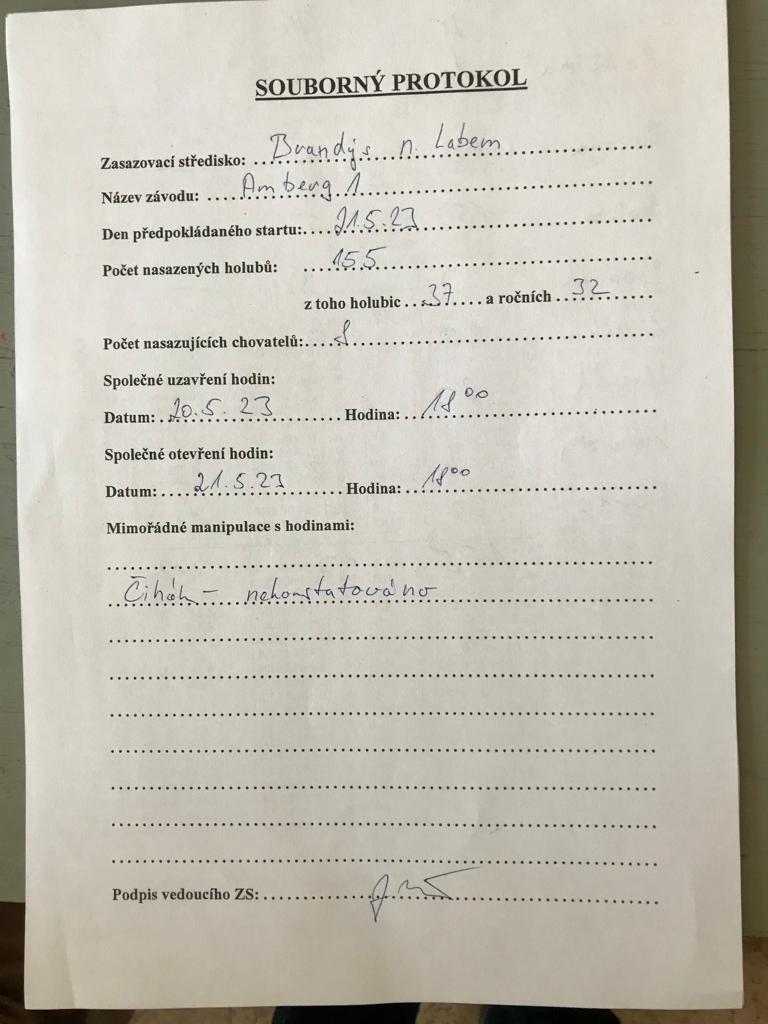 SOUBORNÝ PROTOKOL
Zasazovací středisko: Brandýs n. Labem
Název závodu: Amberg 1
Den předpokládaného startu: 21.5.23
Počet nasazených holubů: 155
z toho holubic 37 a ročních 32
Počet nasazujících chovatelů: 8
Společné uzavření hodin:
Datum: 20.5.23 Hodina: 18 00
Společné otevření hodin:
Datum: 21.5.23 Hodina: 18 00
Mimořádné manipulace s hodinami:
Čihák - nekonstatováno
Podpis vedoucího ZS: